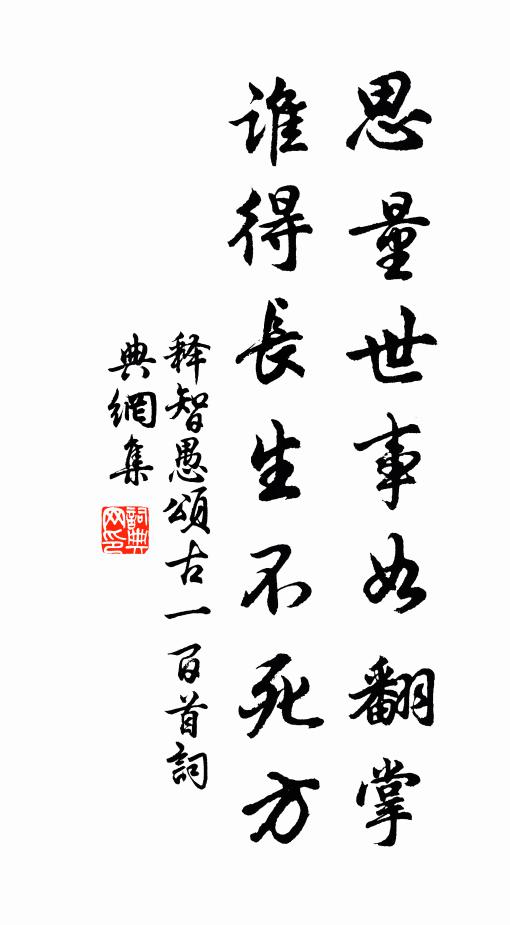 思量世事如翻掌
誰得長生不死方
释智愚頌古一百首詞
典網集
詞典
网印